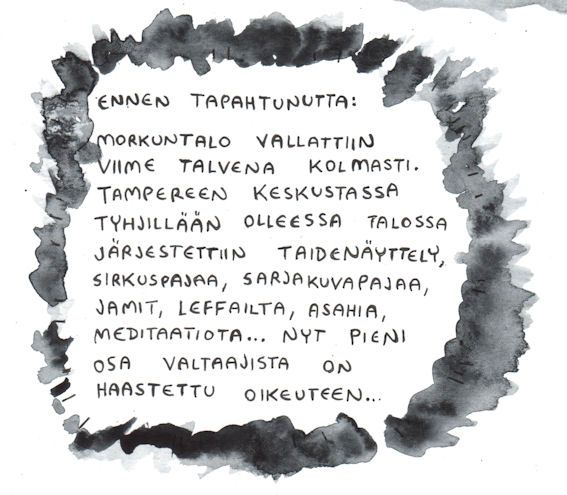 ENNEN TAPAHTUNUTTA:
MORKUNTALO VALLATTIIN
VIIME TALVENA KOLMASTI.
TAMPEREEN KESKUSTASSA
TYHJILLÄÄN OLLEESSA TALOSSA
JÄRJESTETTIIN TAIDENÄYTTELY,
SIRKUSPAJAA, SARJAKUVAPAJAA,
JAMIT, LEFFAILTA, ASAHIA,
MEDITAATIOTA... NYT PIENI
OSA VALTAAJISTA ON
HAASTETTU OIKEUTEEN...